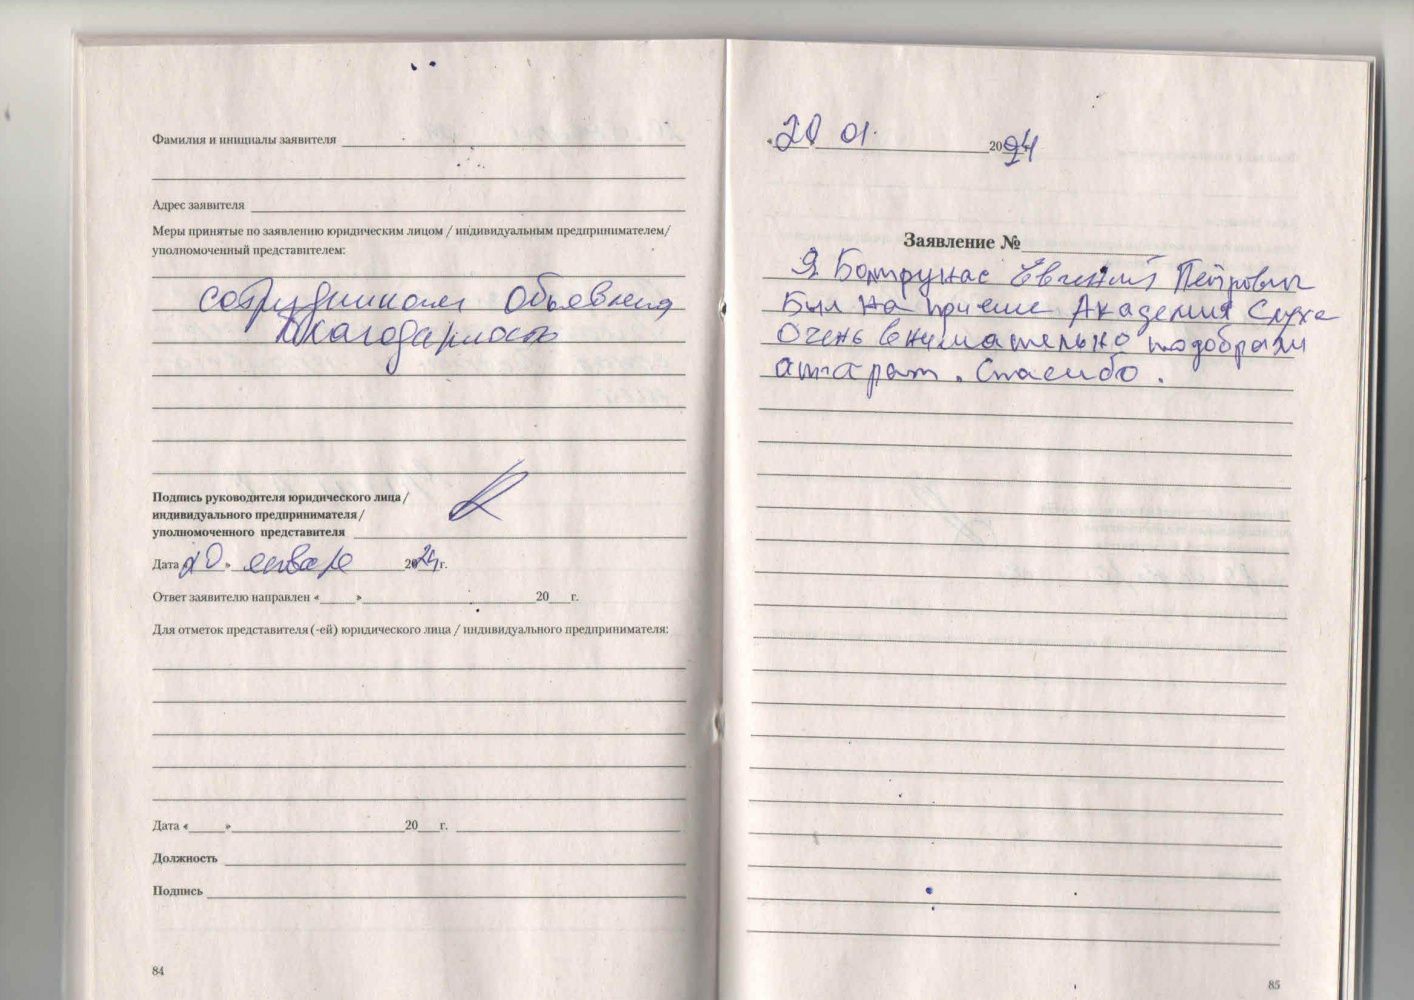 Фамилия и инициалы заявителя
Адрес заявителя
Меры принятые по заявлению юридическим лицом / индивидуальным предпринимателем/
уполномоченный представителем:
сотрудникам объявлена
благодарность
Подпись руководителя юридического лица /
индивидуального предпринимателя /
уполномоченного представителя
Дата «20» января 2024 г.
Ответ заявителю направлен «____»____20__г.
Для отметок представителя (-ей) юридического лица / индивидуального предпринимателя:
Дата «____»____20__г.
Должность
Подпись
84
«20 01. 2024
Заявление №
Я Болтрукас Евгений Петрович
Был на приеме Академия Слуха
Очень внимательно подобрали
аппарат. Спасибо.
85